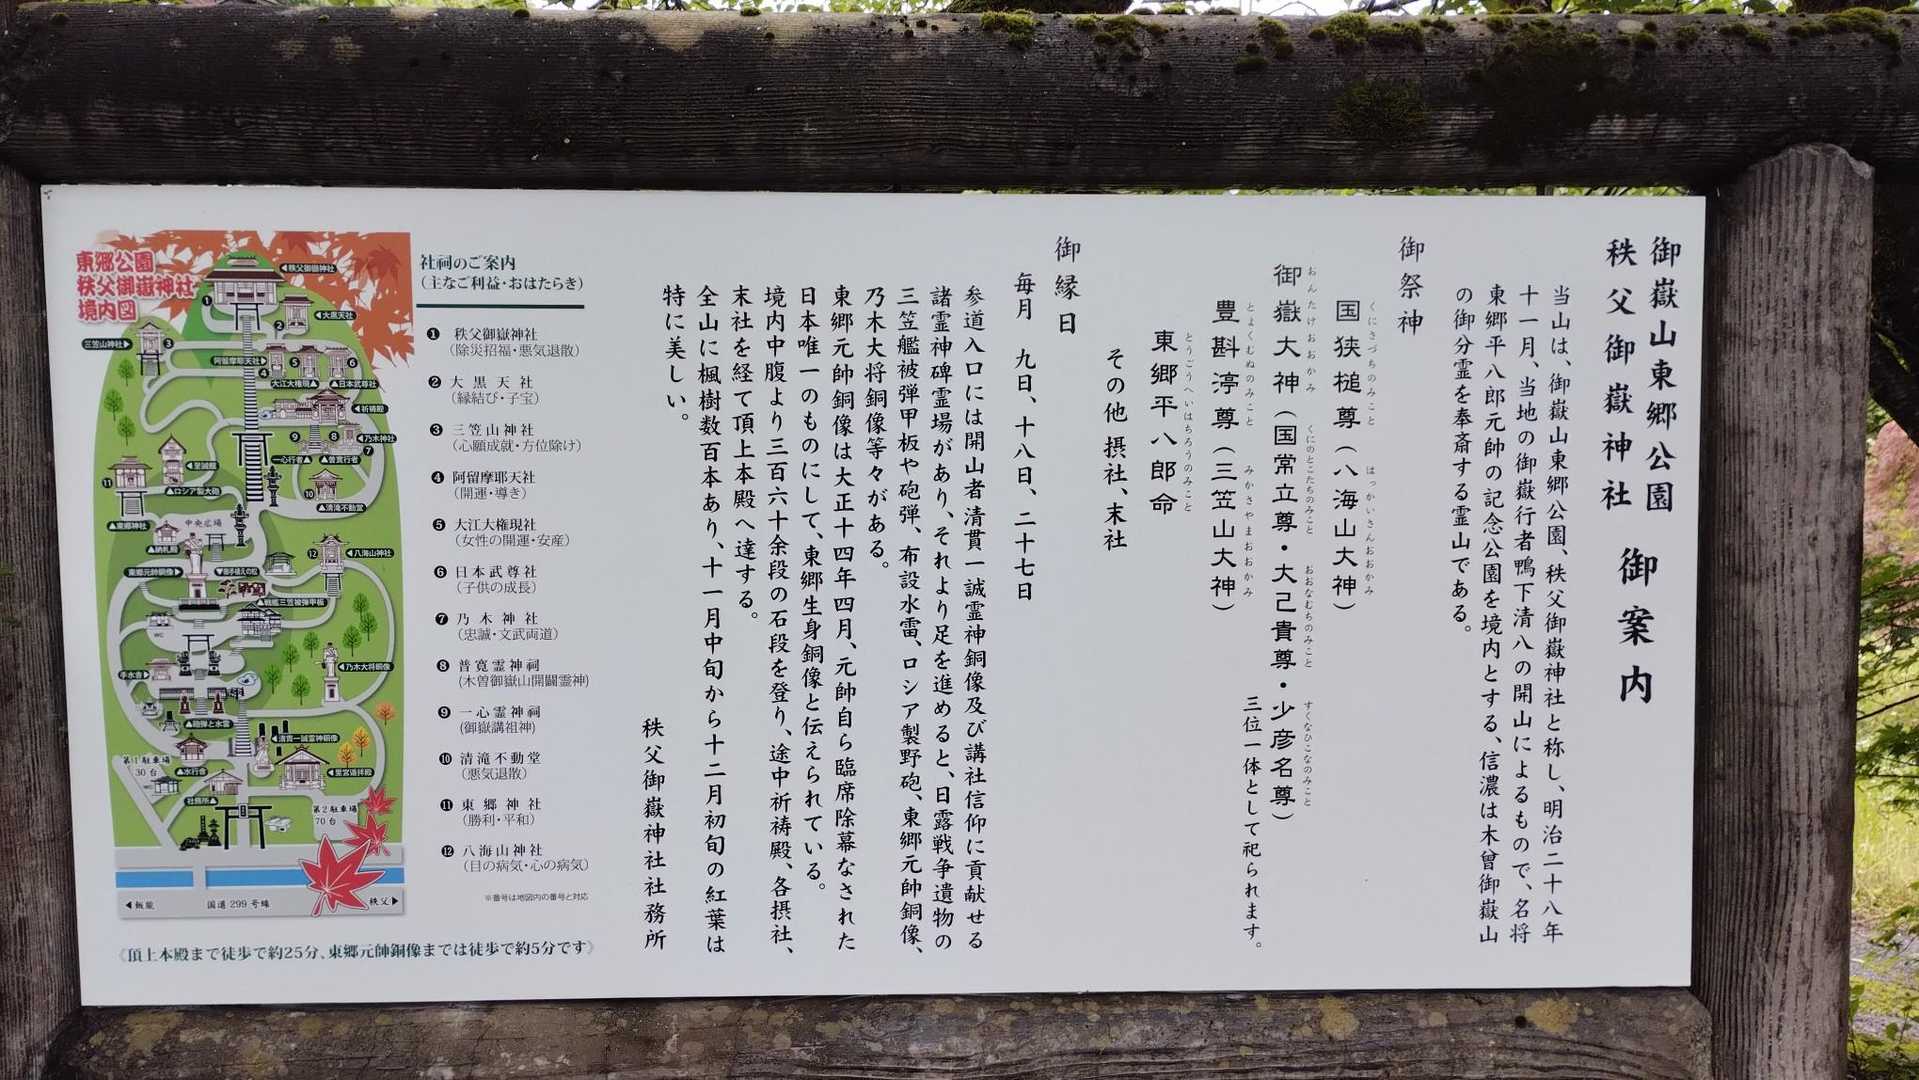 御嶽山東郷公園
秩父御嶽神社　御案内
当山は、御嶽山東郷公園、秩父御嶽神社と称し、明治二十八年
十一月、当地の御嶽行者鴨下清八の開山によるもので、名将
東郷平八郎元帥の記念公園を境内とする、信濃は木曾御嶽山
の御分霊を奉斎する霊山である。
御祭神
国狭槌尊（八海山大神）
くにさづちのみこと　はっかいさんおおかみ
御嶽大神（国常立尊・大己貴尊・少彦名尊）
おんたけおおかみ　くにのとこたちのみこと　おおなむちのみこと　すくなひこなのみこと
三位一体として祀られます。
豊斟渟尊（三笠山大神）
とよくむぬのみこと　みかさやまおおかみ
東郷平八郎命
とうごうへいはちろうのみこと
その他 摂社、末社
御縁日
毎月　九日、十八日、二十七日
参道入口には開山者清貫一誠霊神銅像及び講社信仰に貢献せる
諸霊神碑霊場があり、それより足を進めると、日露戦争遺物の
三笠艦被弾甲板や砲弾、布設水雷、ロシア製野砲、東郷元帥銅像、
乃木大将銅像等々がある。
東郷元帥銅像は大正十四年四月、元帥自ら臨席除幕なされた
日本唯一のものにして、東郷生身銅像と伝えられている。
境内中腹より三百六十余段の石段を登り、途中祈祷殿、各摂社、
末社を経て頂上本殿へ達する。
全山に楓樹数百本あり、十一月中旬から十二月初旬の紅葉は
特に美しい。
秩父御嶽神社社務所
社祠のご案内
（主なご利益・おはたらき）
❶ 秩父御嶽神社
（除災招福・悪気退散）
❷ 大黒天社
（縁結び・子宝）
❸ 三笠山神社
（心願成就・方位除け）
❹ 阿留摩耶天社
（開運・導き）
❺ 大江大権現社
（女性の開運・安産）
❻ 日本武尊社
（子供の成長）
❼ 乃木神社
（忠誠・文武両道）
❽ 普寛霊神祠
（木曽御嶽山開闢霊神）
❾ 一心霊神祠
（御嶽講祖神）
❿ 清滝不動堂
（悪気退散）
⓫ 東郷神社
（勝利・平和）
⓬ 八海山神社
（目の病気・心の病気）
※番号は地図内の番号と対応
東郷公園
秩父御嶽神社
境内図
◀秩父御嶽神社
1
2
◀大黒天社
三笠山神社▶
3
阿留摩耶天社▶
4
5
6
大江大権現▲
▲日本武尊社
◀祈祷殿
9
8
◀乃木神社
7
一心行者▲
▲普寛行者
◀至誠館
11
▲ロシア製大砲
10
▲清滝不動堂
▲東郷神社
中央広場
▲納札殿
12
◀八海山神社
東郷元帥銅像▶
▼御手植えの松
▲戦艦三笠被弾甲板
WC
手水舎▶
◀乃木大将銅像
▲砲弾と水雷
◀清貫一誠霊神銅像
第1駐車場
30台
▲水行舎
◀里宮遥拝殿
WC
社務所▲
第2駐車場
70台
◀飯能
国道299号線
秩父▶
《頂上本殿まで徒歩で約25分、東郷元帥銅像までは徒歩で約5分です》